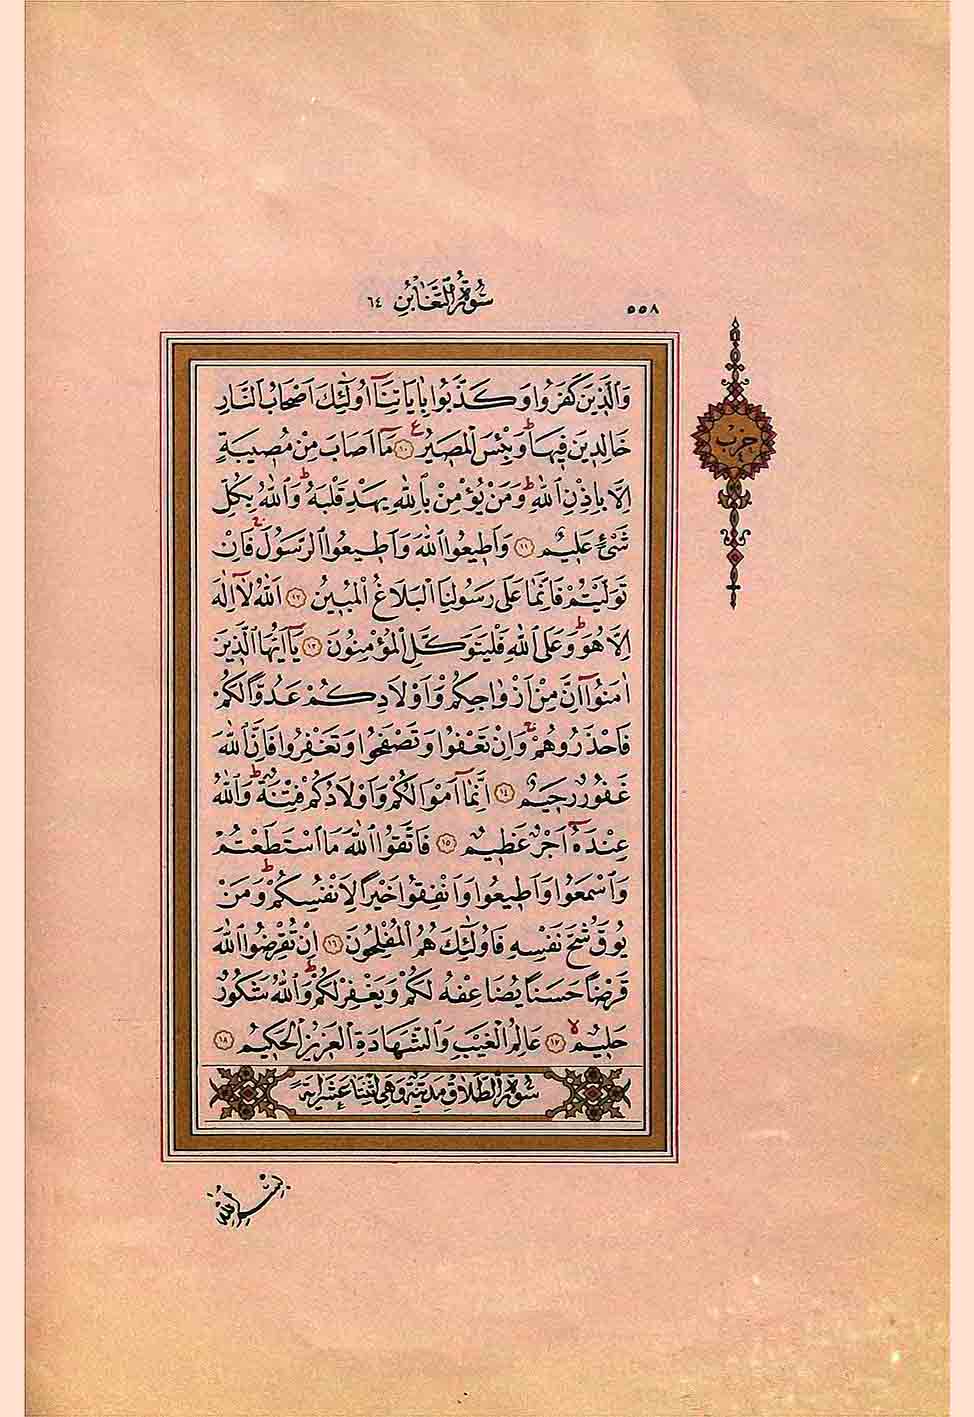 ٥٥٨
سُورَةُ التَّغَابُنِ ٦٤
حِزْب
وَالَّذ۪ينَ كَفَرُوا وَكَذَّبُوا بِاٰيَاتِنَٓا اُو۬لٰٓئِكَ اَصْحَابُ النَّارِ
خَالِد۪ينَ ف۪يهَاۜ وَبِئْسَ الْمَص۪يرُ۟ ﴿١٠﴾ مَٓا اَصَابَ مِنْ مُص۪يبَةٍ
اِلَّا بِاِذْنِ اللّٰهِۜ وَمَنْ يُؤْمِنْ بِاللّٰهِ يَهْدِ قَلْبَهُۜ وَاللّٰهُ بِكُلِّ
شَيْءٍ عَل۪يمٌ ﴿١١﴾ وَاَط۪يعُوا اللّٰهَ وَاَط۪يعُوا الرَّسُولَۚ فَاِنْ
تَوَلَّيْتُمْ فَاِنَّمَا عَلٰى رَسُولِنَا الْبَلَاغُ الْمُب۪ينُ ﴿١٢﴾ اَللّٰهُ لَٓا اِلٰهَ
اِلَّا هُوَۜ وَعَلَى اللّٰهِ فَلْيَتَوَكَّلِ الْمُؤْمِنُونَ ﴿١٣﴾ يَٓا اَيُّهَا الَّذ۪ينَ
اٰمَنُٓوا اِنَّ مِنْ اَزْوَاجِكُمْ وَاَوْلَادِكُمْ عَدُوًّا لَكُمْ
فَاحْذَرُوهُمْۚ وَاِنْ تَعْفُوا وَتَصْفَحُوا وَتَغْفِرُوا فَاِنَّ اللّٰهَ
غَفُورٌ رَح۪يمٌ ﴿١٤﴾ اِنَّمَٓا اَمْوَالُكُمْ وَاَوْلَادُكُمْ فِتْنَةٌۜ وَاللّٰهُ
عِنْدَهُٓ اَجْرٌ عَظ۪يمٌ ﴿١٥﴾ فَاتَّقُوا اللّٰهَ مَا اسْتَطَعْتُمْ
وَاسْمَعُوا وَاَط۪يعُوا وَاَنْفِقُوا خَيْرًا لِاَنْفُسِكُمْۜ وَمَنْ
يُوقَ شُحَّ نَفْسِه۪ فَاُو۬لٰٓئِكَ هُمُ الْمُفْلِحُونَ ﴿١٦﴾ اِنْ تُقْرِضُوا اللّٰهَ
قَرْضًا حَسَنًا يُضَاعِفْهُ لَكُمْ وَيَغْفِرْ لَكُمْۜ وَاللّٰهُ شَكُورٌ
حَل۪يمٌۙ ﴿١٧﴾ عَالِمُ الْغَيْبِ وَالشَّهَادَةِ الْعَز۪يزُ الْحَك۪يمُ ﴿١٨﴾
سُورَةُ الطَّلَاقِ مَدَنِيَّةٌ وَهِيَ اثْنَتَا عَشْرَةَ اٰيَةً
بِسْمِ اللّٰهِ